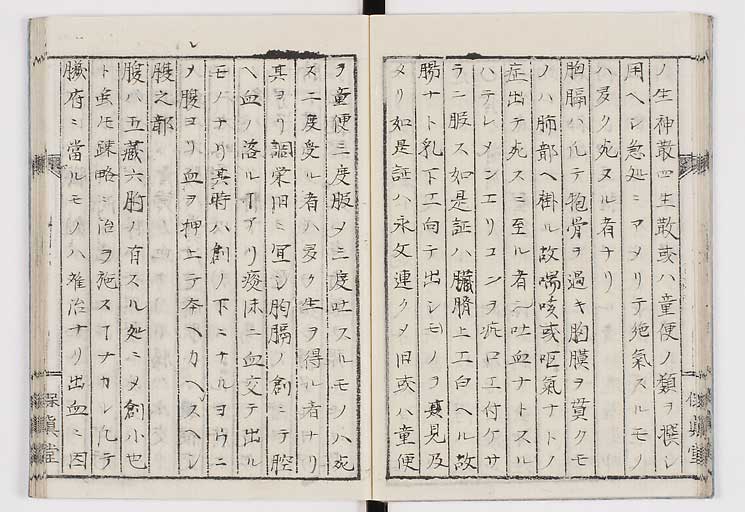 ノ生神散四生散或ハ童便ノ類ヲ撰シ
用ヘシ急処ニアメリテ絶氣スルモノ
ハ多ク死ヌル者ナリ
胸膈ハ凢テ抱骨ヲ過キ胸膜ヲ貫クモ
ノハ肺部ヘ掛ル故喘咳或呕氣ナトノ
症出テ死スニ至ル者ニ吐血ナトスル
ハテレメンエリコンヲ疵口エ付ケサ
ラニ服ス如是証ハ臓腑上エ向ヘル故
腸ナト乳下エ向テ出シモノヲ見及
メリ如是証ハ永文連クメ旧或ハ童便
ヲ童便三度服メ三度吐スルモノハ死
ス二度受ル者ハ多ク生ヲ得ル者ナリ
其ヨリ調栄旧ニ冝シ胸膈ノ創ニテ腔
ヘ血ノ落ルアリ痰沫ニ血交テ出ル
モノナリ其時ハ創ノ下ニナルヨウニ
メ腹ヨリ血ヲ押上テ本ヘカヘスヘシ
腹之部
腹ハ五藏六腑ノ有スル処ニメ創小也
ト虽モ踈略ニ治ヲ施スナカレ凢テ
臓府ニ當ルモノハ難治ナリ出血ニ因
保眞堂
保眞堂